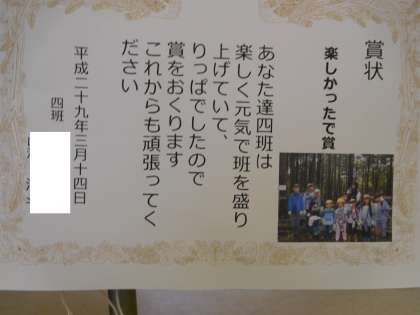 賞状
楽しかったで賞
あなた達四班は
楽しく元気で班を盛り
上げていて、
りっぱでしたので
賞をおくります
これからも頑張ってく
ださい
平成二十九年三月十四日
四班